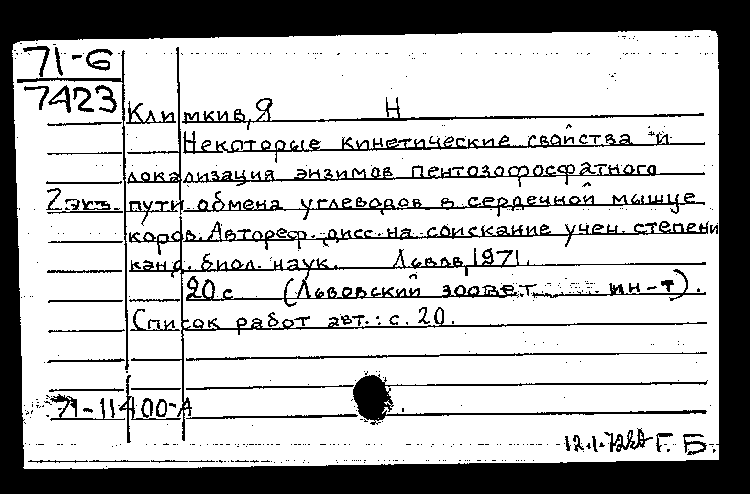 71-6
7423
Климкив, Я Н
Некоторые кинетические свойства и
локализация энзимов пентозофосфатного
2 экз. пути обмена углеводов в сердечной мышце
коров. Автореф. дисс. на соискание учен. степени
канд. биол. наук. Львов, 1971.
20 с (Львовский зоовет. ин-т).
Список работ авт.: с. 20.
71-11400-А
12.1.72 Г. Б.